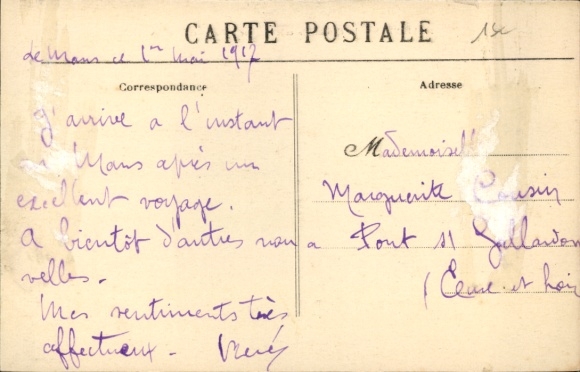 CARTE POSTALE
Le Mans ce 1er Mai 1917
Correspondance
J'arrive a l'instant
Mans après un
excellent voyage.
A bientôt d'autres nou
velles.
Mes sentiments très
affectueux -
Adresse
Mademoiselle
Marguerite Cousin
a Pont s/ Gallardon
(Eure et Loir